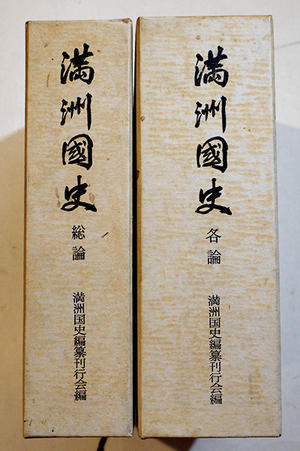 満洲國史
総論
満洲国史編纂刊行会編
満洲國史
各論
満洲国史編纂刊行会編